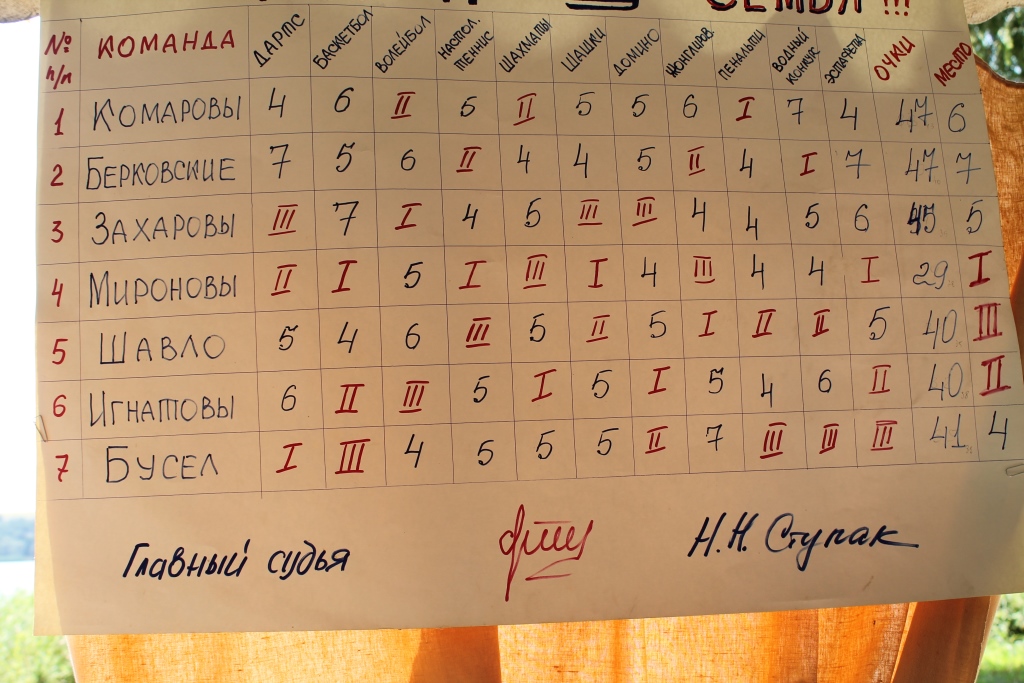 III СЕМЬЯ !!!
№ п/п КОМАНДА ДАРТС БАСКЕТБОЛ ВОЛЕЙБОЛ НАСТОЛ. ТЕННИС ШАХМАТЫ ШАШКИ ДОМИНО ЖОНГЛИРОВ. ПЕНАЛЬТИ ВОДНЫЙ КОНКУРС ЭСТАФЕТЫ ОЧКИ МЕСТО
1 КОМАРОВЫ 4 6 II 5 II 5 5 6 I 7 4 47 6
2 БЕРКОВСКИЕ 7 5 6 II 4 4 5 II 4 I 7 47 7
3 ЗАХАРОВЫ III 7 I 4 5 III III 4 4 5 6 45 5
4 МИРОНОВЫ II I 5 I III I 4 III 4 4 I 29 I
5 ШАВЛО 5 4 6 III 5 II 5 I II II 5 40 III
6 ИГНАТОВЫ 6 II III 5 I 5 I 5 4 6 II 40 II
7 БУСЕЛ I III 4 5 5 5 II 7 III III III 41 4
Главный судья Н.Н. Ступак